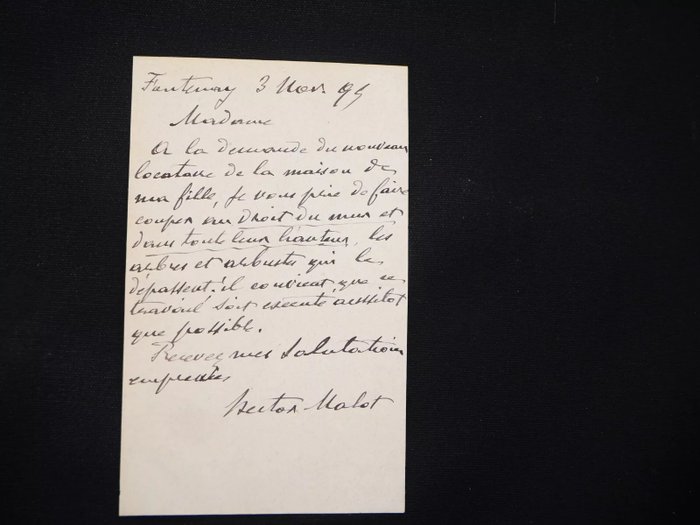 Fontenay 3 Nov. 95
Madame
A la demande du nouveau
locataire de la maison de
ma fille, je vous prie de faire
couper au droit du mur et
dans toute leur hauteur, les
arbres et arbustes qui le
dépassent. il convient que ce
travail soit executé aussitot
que possible.
Recevez mes salutations
empressées
Hector Malot